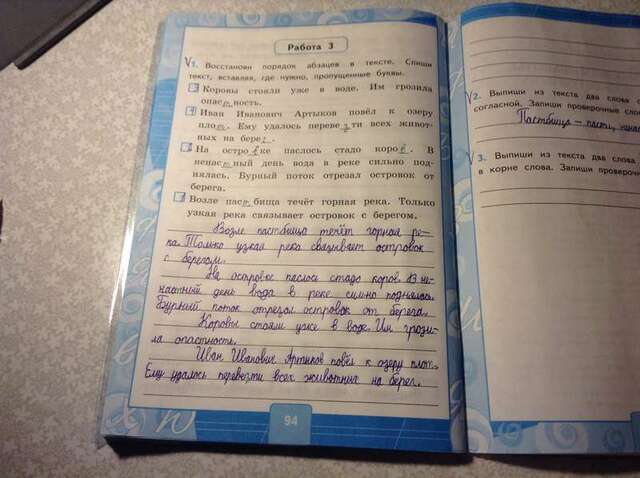 Работа 3
√1. Восстанови порядок абзацев в тексте. Спиши
текст, вставляя, где нужно, пропущенные буквы.
3 Коровы стояли уже в воде. Им грозила
опас_ность.
4 Иван Иванович Артыков повёл к озеру
плот. Ему удалось перевезти всех живот-
ных на берег.
2 На островке паслось стадо коров. В
ненастный день вода в реке сильно под-
нялась. Бурный поток отрезал островок от
берега.
1 Возле пастбища течёт горная река. Только
узкая река связывает островок с берегом.
Возле пастбища течёт горная ре-
ка. Только узкая река связывает островок
с берегом.
На островке паслось стадо коров. В не-
настный день вода в реке сильно поднялась.
Бурный поток отрезал островок от берега.
Коровы стояли уже в воде. Им грози-
ла опастность.
Иван Иванович Артыков повёл к озеру плот.
Ему удалось перевезти всех животных на берег.
94
√2. Выпиши из текста два слова
согласной. Запиши проверочные сло
Пастбище – пасти,
√3. Выпиши из текста два слова
в корне слова. Запиши провероч